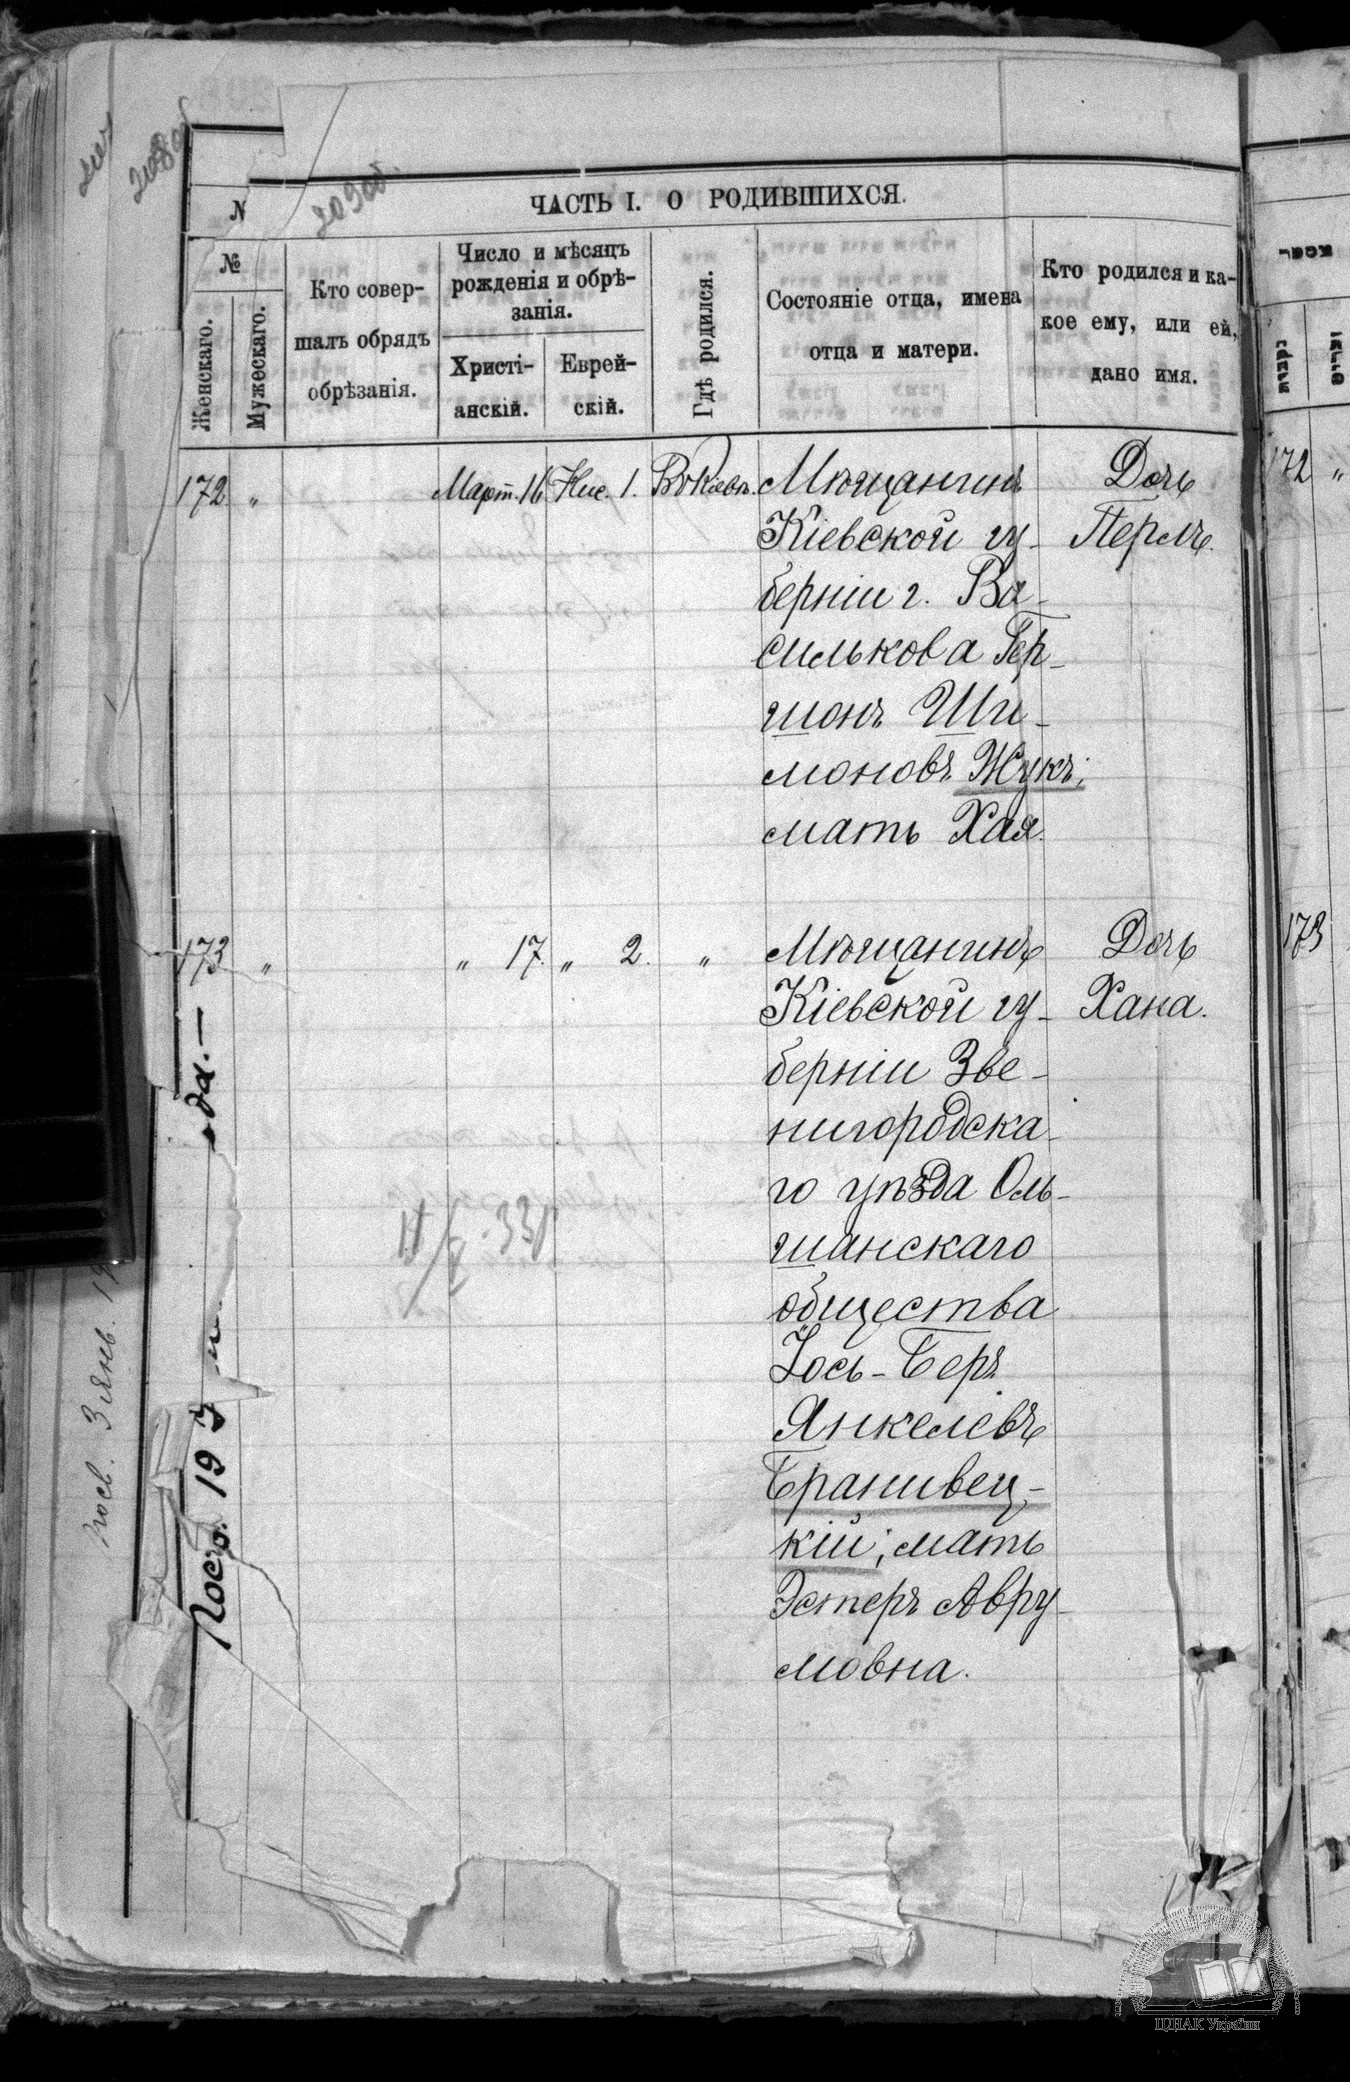 209об.
№
ЧАСТЬ I. О РОДИВШИХСЯ.
№
Женскаго.
Мужескаго.
Кто совер-
шалъ обрядъ
обрѣзанія.
Число и мѣсяцъ
рожденія и обрѣ-
занія.
Христі-
анскій.
Еврей-
скій.
Гдѣ родился.
Состояніе отца, имена
отца и матери.
Кто родился и ка-
кое ему, или ей,
дано имя.
172. „ Март. 16 Нис. 1. Въ Кіевѣ. Мѣщанинъ Дочь
Кіевской гу- Перль.
берніи г. Ва-
силькова Гер-
шонъ Ши-
моновъ Жукъ;
мать Хая.
172 „
173 „ „ 17. „ 2. „ Мѣщанинъ Дочь
Кіевской гу- Хана.
берніи Зве-
нигородска-
го уѣзда Оль-
шанскаго
общества
Іось-Беръ
Янкелевъ
Бранивец-
кій; мать
Эстеръ Авру-
мовна.
173
да.—
Посв. 19
Посв. 3 янв 19
ЦДІАК України